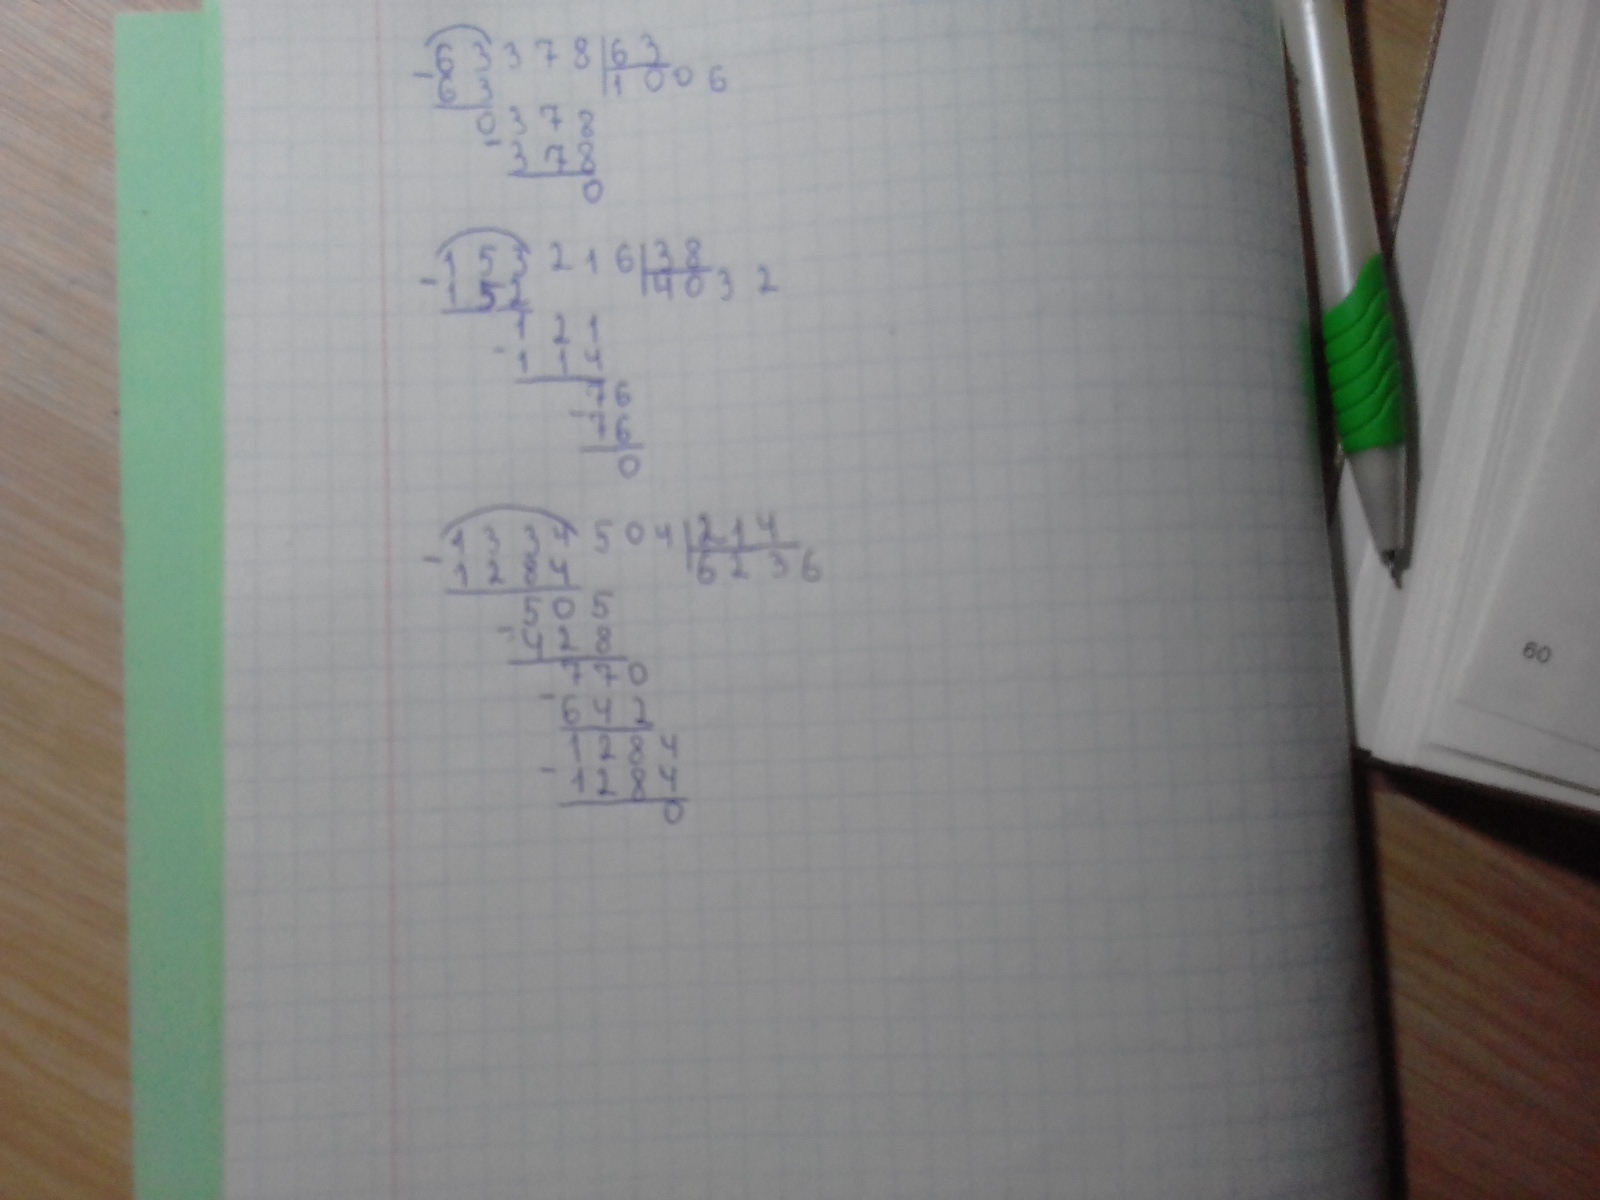 63378|63
-63 1006
0378
-378
0
153216|38
-152 4032
121
-114
76
-76
0
1334504|214
-1284 6236
505
-428
770
-642
1284
-1284
0
60